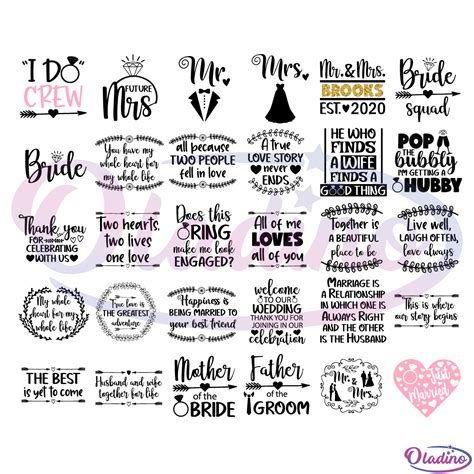 "I DO"
CREW
FUTURE
Mrs
Mr.
Mrs.
Mr. & Mrs.
BROOKS
EST. 2020
Bride
squad
Bride
You have my
whole heart for
my whole life
all because
TWO PEOPLE
fell in love
A true
LOVE STORY
never
ENDS
HE WHO
FINDS
A WIFE
FINDS
A
GOOD THING
POP
THE
bubbly
I'M GETTING A
HUBBY
Thank you
FOR
CELEBRATING
WITH US
Two hearts,
two lives
one love
Does this
RING
make me look
ENGAGED?
All of me
LOVES
all of you
Together is
A BEAUTIFUL
place to be
Live well,
LAUGH OFTEN,
love always
My whole
heart for my
whole life
True love is
THE GREATEST
adventure
Happiness is
BEING MARRIED TO
your best friend
welcome
TO OUR
WEDDING
THANK YOU FOR
JOINING IN OUR
celebration
MARRIAGE IS
A RELATIONSHIP
IN WHICH ONE IS
ALWAYS RIGHT
AND THE OTHER
IS THE HUSBAND
This is where
our story begins
THE BEST
is yet to come
Husband and wife
together for life
Mother
of the
BRIDE
Father
of the
GROOM
Mr.
&
Mrs.
Just
Married
Oladino
Oladino